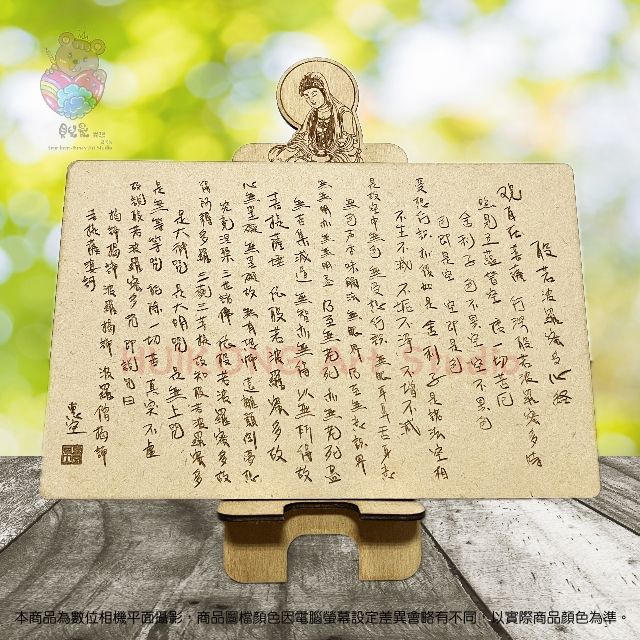 般若波羅蜜多心經
观自在菩薩 行深般若波羅蜜多時
照見五蘊皆空 度一切苦厄
舍利子色不異空空不異色
色即是空 空即是色
受想行識亦復如是 舍利子是諸法空相
不生不滅 不垢不淨 不增不減
是故空中無色無受想行識 無眼耳鼻舌身意
無色声香味觸法 無眼界乃至無意識界
無無明亦無無明盡 乃至無老死亦無老死盡
無苦集滅道 無智亦無得以無所得故
菩提薩埵 依般若波羅蜜多故
心無罣礙無罣礙故 無有恐怖 遠離顛倒夢想
究竟涅槃三世諸佛 依般若波羅蜜多故
得阿耨多羅三藐三菩提故知般若波羅蜜多
是大神咒 是大明咒 是無上咒
是無等等咒 能除一切苦真實不虛
故說般若波羅蜜多咒 即說咒曰
揭諦揭諦 波羅揭諦 波羅僧揭諦
菩提薩婆訶
惠空
HUIKONG Art Studio
本商品為數位相機平面攝影，商品圖檔顏色因電腦螢幕設定差異會略有不同，以實際商品顏色為準。